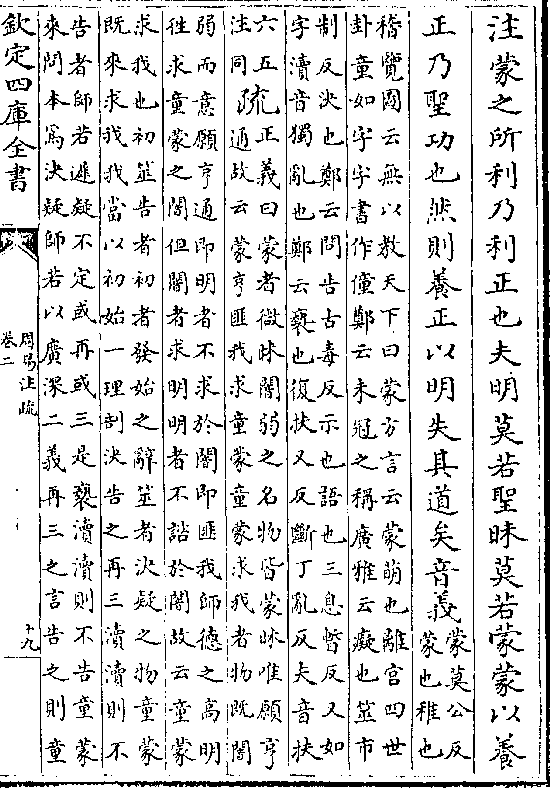 注蒙之所利乃利正也夫明莫若聖昧莫若蒙蒙以養
正乃聖功也然則養正以明失其道矣音義
蒙莫公反
蒙也稚也
稽覽圖云無以教天下曰蒙方言云蒙萌也離宮四世
卦童如字字書作僮鄭云未冠之稱廣雅云癡也筮市
制反決也鄭云問告古毒反示也語也三息暫反又如
字瀆音獨亂也鄭云褻也復扶又反斷丁亂反夫音扶
六五
注同
疏
正義曰蒙者微昧闇弱之名物皆蒙昧唯願亨
通故云蒙亨匪我求童蒙童蒙求我者物既闇
弱而意願亨通即明者不求於闇即匪我師德之高明
往求童蒙之闇但闇者求明明者不諮於闇故云童蒙
求我也初筮告者初者發始之辭筮者決疑之物童蒙
既來求我我當以初始一理剖決告之再三瀆瀆則不
告者師若遲疑不定或再或三是褻瀆瀆則不告童蒙
來問本為決疑師若以廣深二義再三之言告之則童
欽定四庫全書
周易注疏
卷二
十九